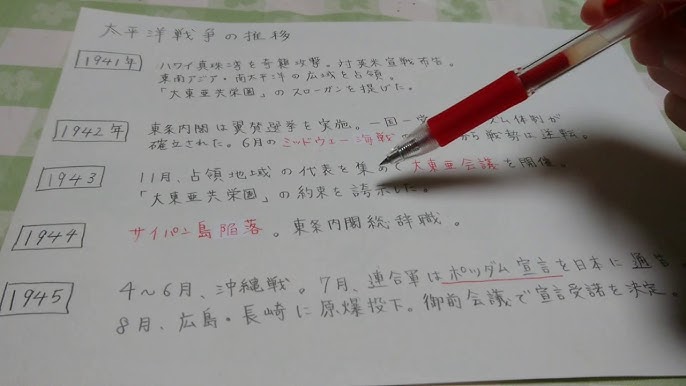 太平洋戦争の推移
1941年
ハワイ真珠湾を奇襲攻撃。対英米宣戦布告。
東南アジア・南太平洋の広域を占領。
「大東亜共栄圏」のスローガンを掲げた。
1942年
東条内閣は翼賛選挙を実施。一国一党 ズム体制が
確立された。6月のミッドウェー海戦 から戦勢は逆転。
1943
11月、占領地上域の代表を集めて大東亜会議を開催。
「大東亜共栄圏」の約束を誇示した。
1944
サイパン島陥落。東条内閣総辞職。
1945
4〜6月、沖縄戦。7月、連合軍はポツダム宣言を日本に通告
8月、広島・長崎に原爆投下。御前会議で宣言受諾を決定。